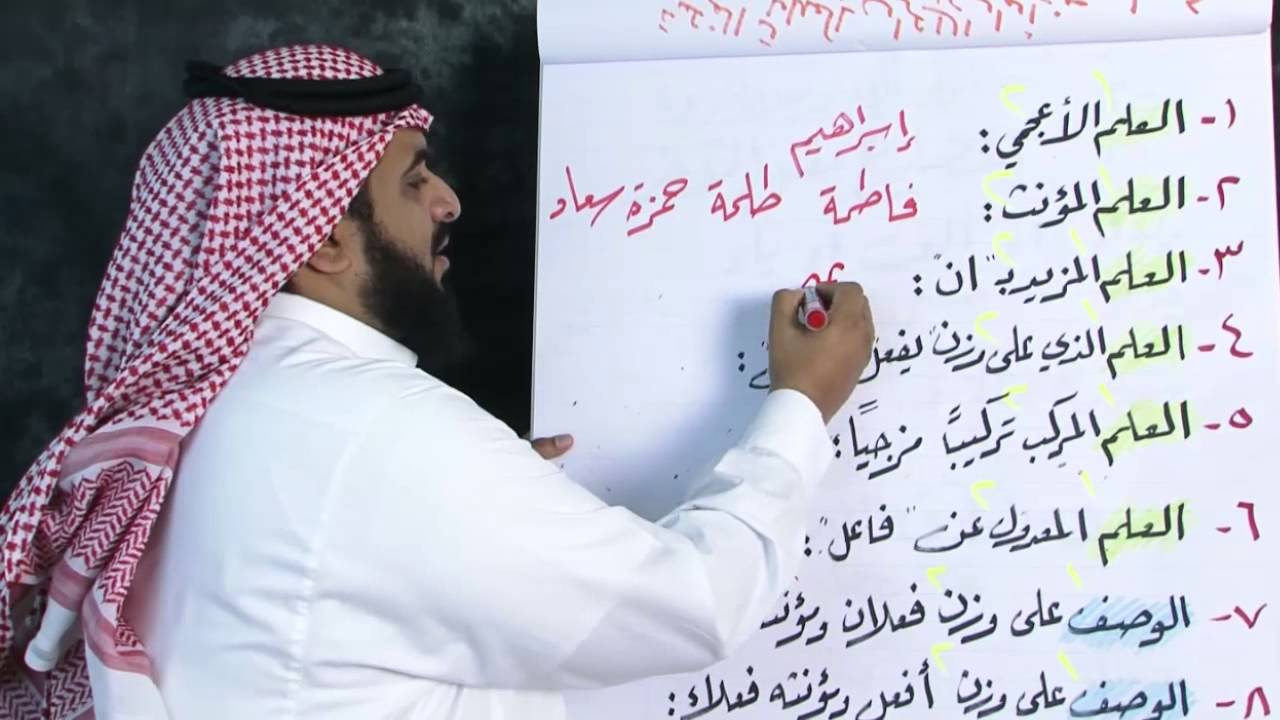 ١- العلم الأعجمي: إبراهيم
٢- العلم المؤنث: فاطمة طلحة حمزة سعاد
٣- العلم المزيد بـ "ان":
٤- العلم الذي على وزن "يفعل :
٥- العلم المركب تركيبًا مزجيًا:
٦- العلم المعدول عن "فاعل":
٧- الوصف على وزن فعلان
٨- الوصف على وزن أفعل ومؤنثه فعلاء: